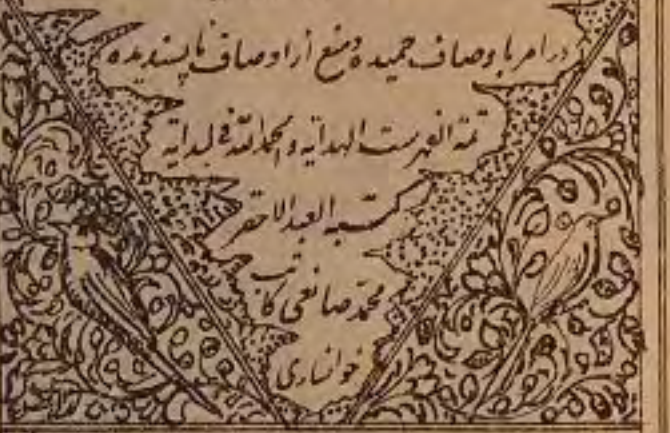 در امر باوصاف حمیده و منع از اوصاف ناپسندیده
تمة الفهرست الهدایه والحمدلله فی البدایه
کتبه العبد الاحقر
محمد صانعی کاتب
خوانساری